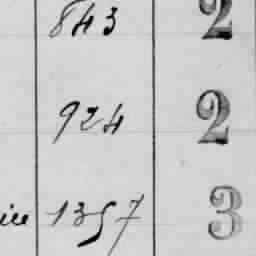 843 2
924 2
1357 3